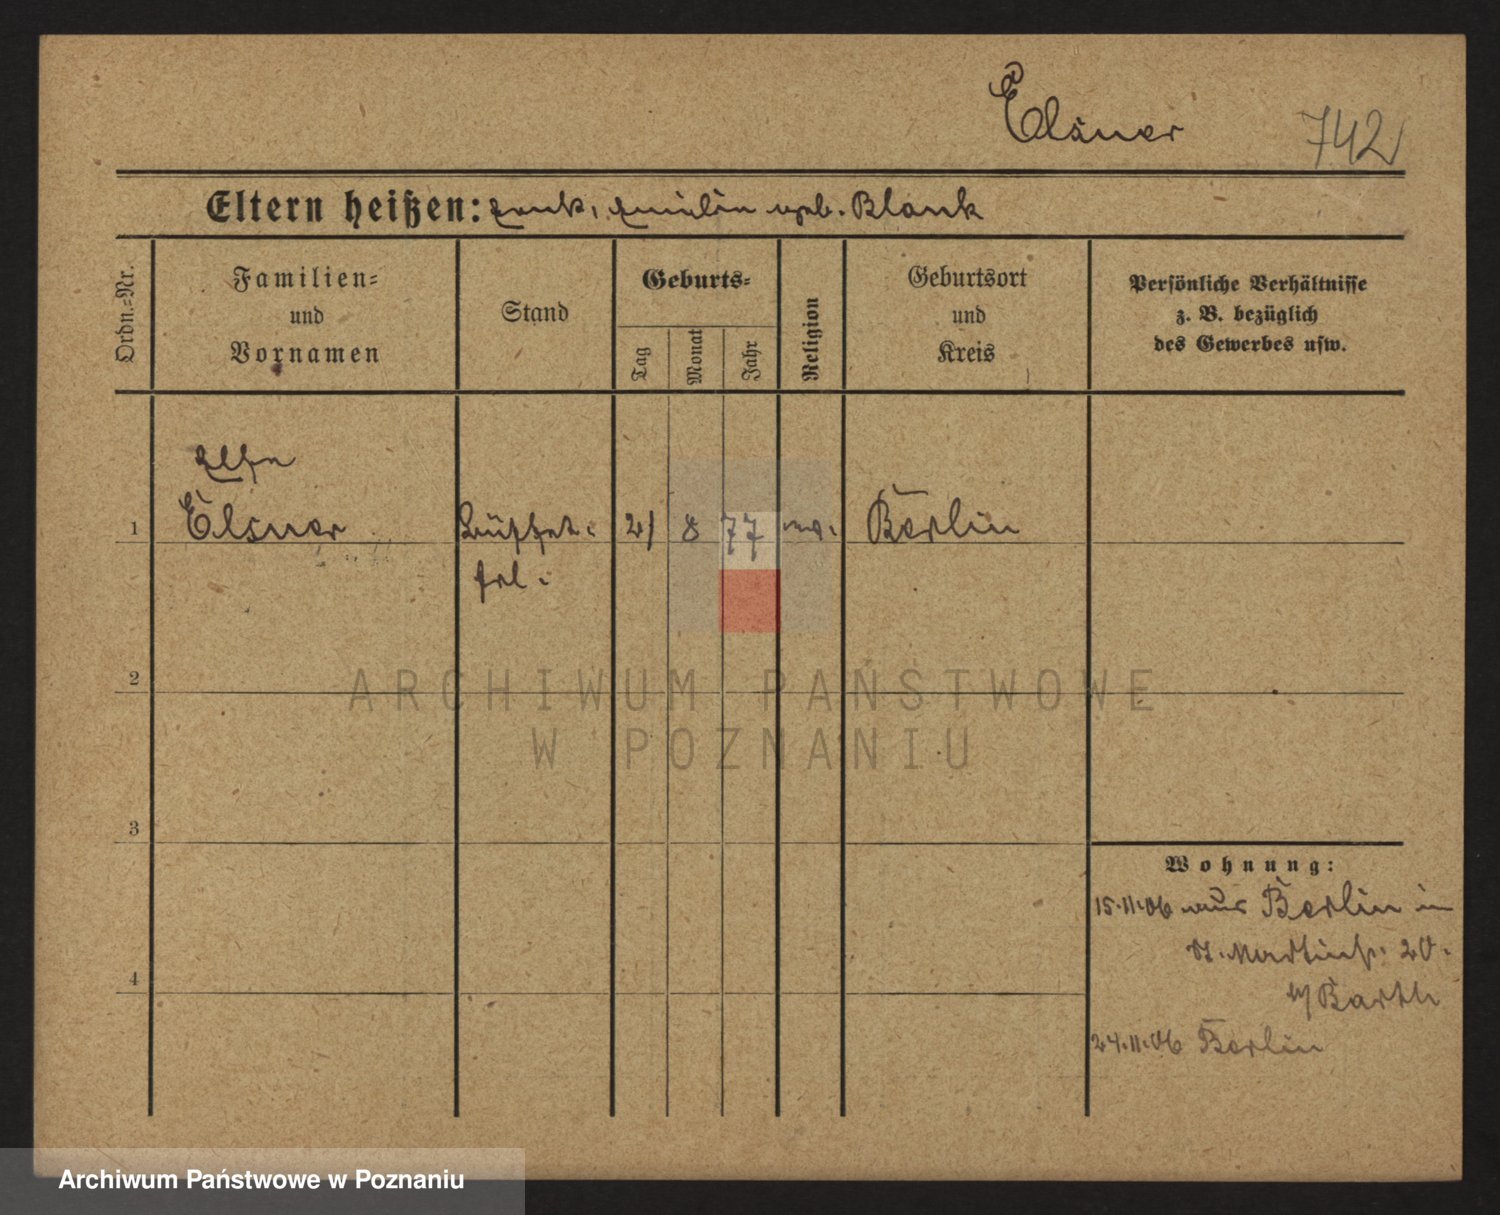 Elsner 742
Eltern heißen: Emilie geb. Blank
Ordn.-Nr.
Familien-
und
Vornamen
Stand
Geburts-
Tag
Monat
Jahr
Religion
Geburtsort
und
Kreis
Persönliche Verhältnisse
z. B. bezüglich
des Gewerbes usw.
1 Elsner Büffet- 21 8 77 ev. Berlin
frl.
2
3
4
Wohnung:
15.11.06 aus Berlin in
St. Martinstr. 20.
b/ Barth
24.11.06 Berlin
ARCHIWUM PAŃSTWOWE
W POZNANIU
Archiwum Państwowe w Poznaniu